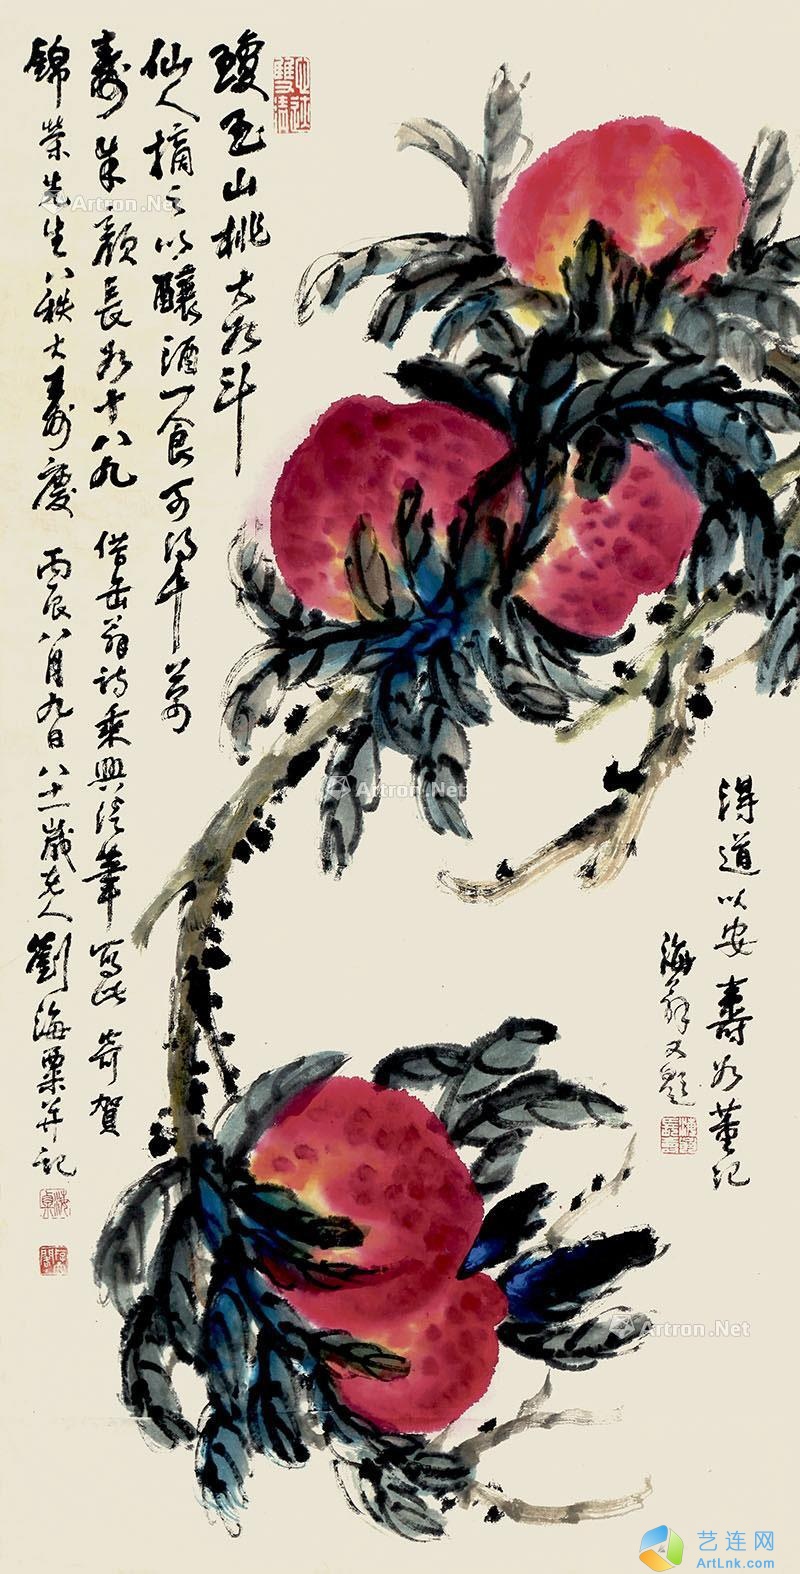 琼玉山桃大如斗
仙人摘之以酿酒一食可得千万
寿朱颜长如十八九 借缶翁诗乘兴泼笔 写此寄贺
錦荣先生八秩大寿慶 丙辰八月九日八十一歲老人劉海粟并記
得道以安壽如董记
海翁又题
Artron.Net
Artron.Net
Artron.Net
艺连网
ArtLnk.com